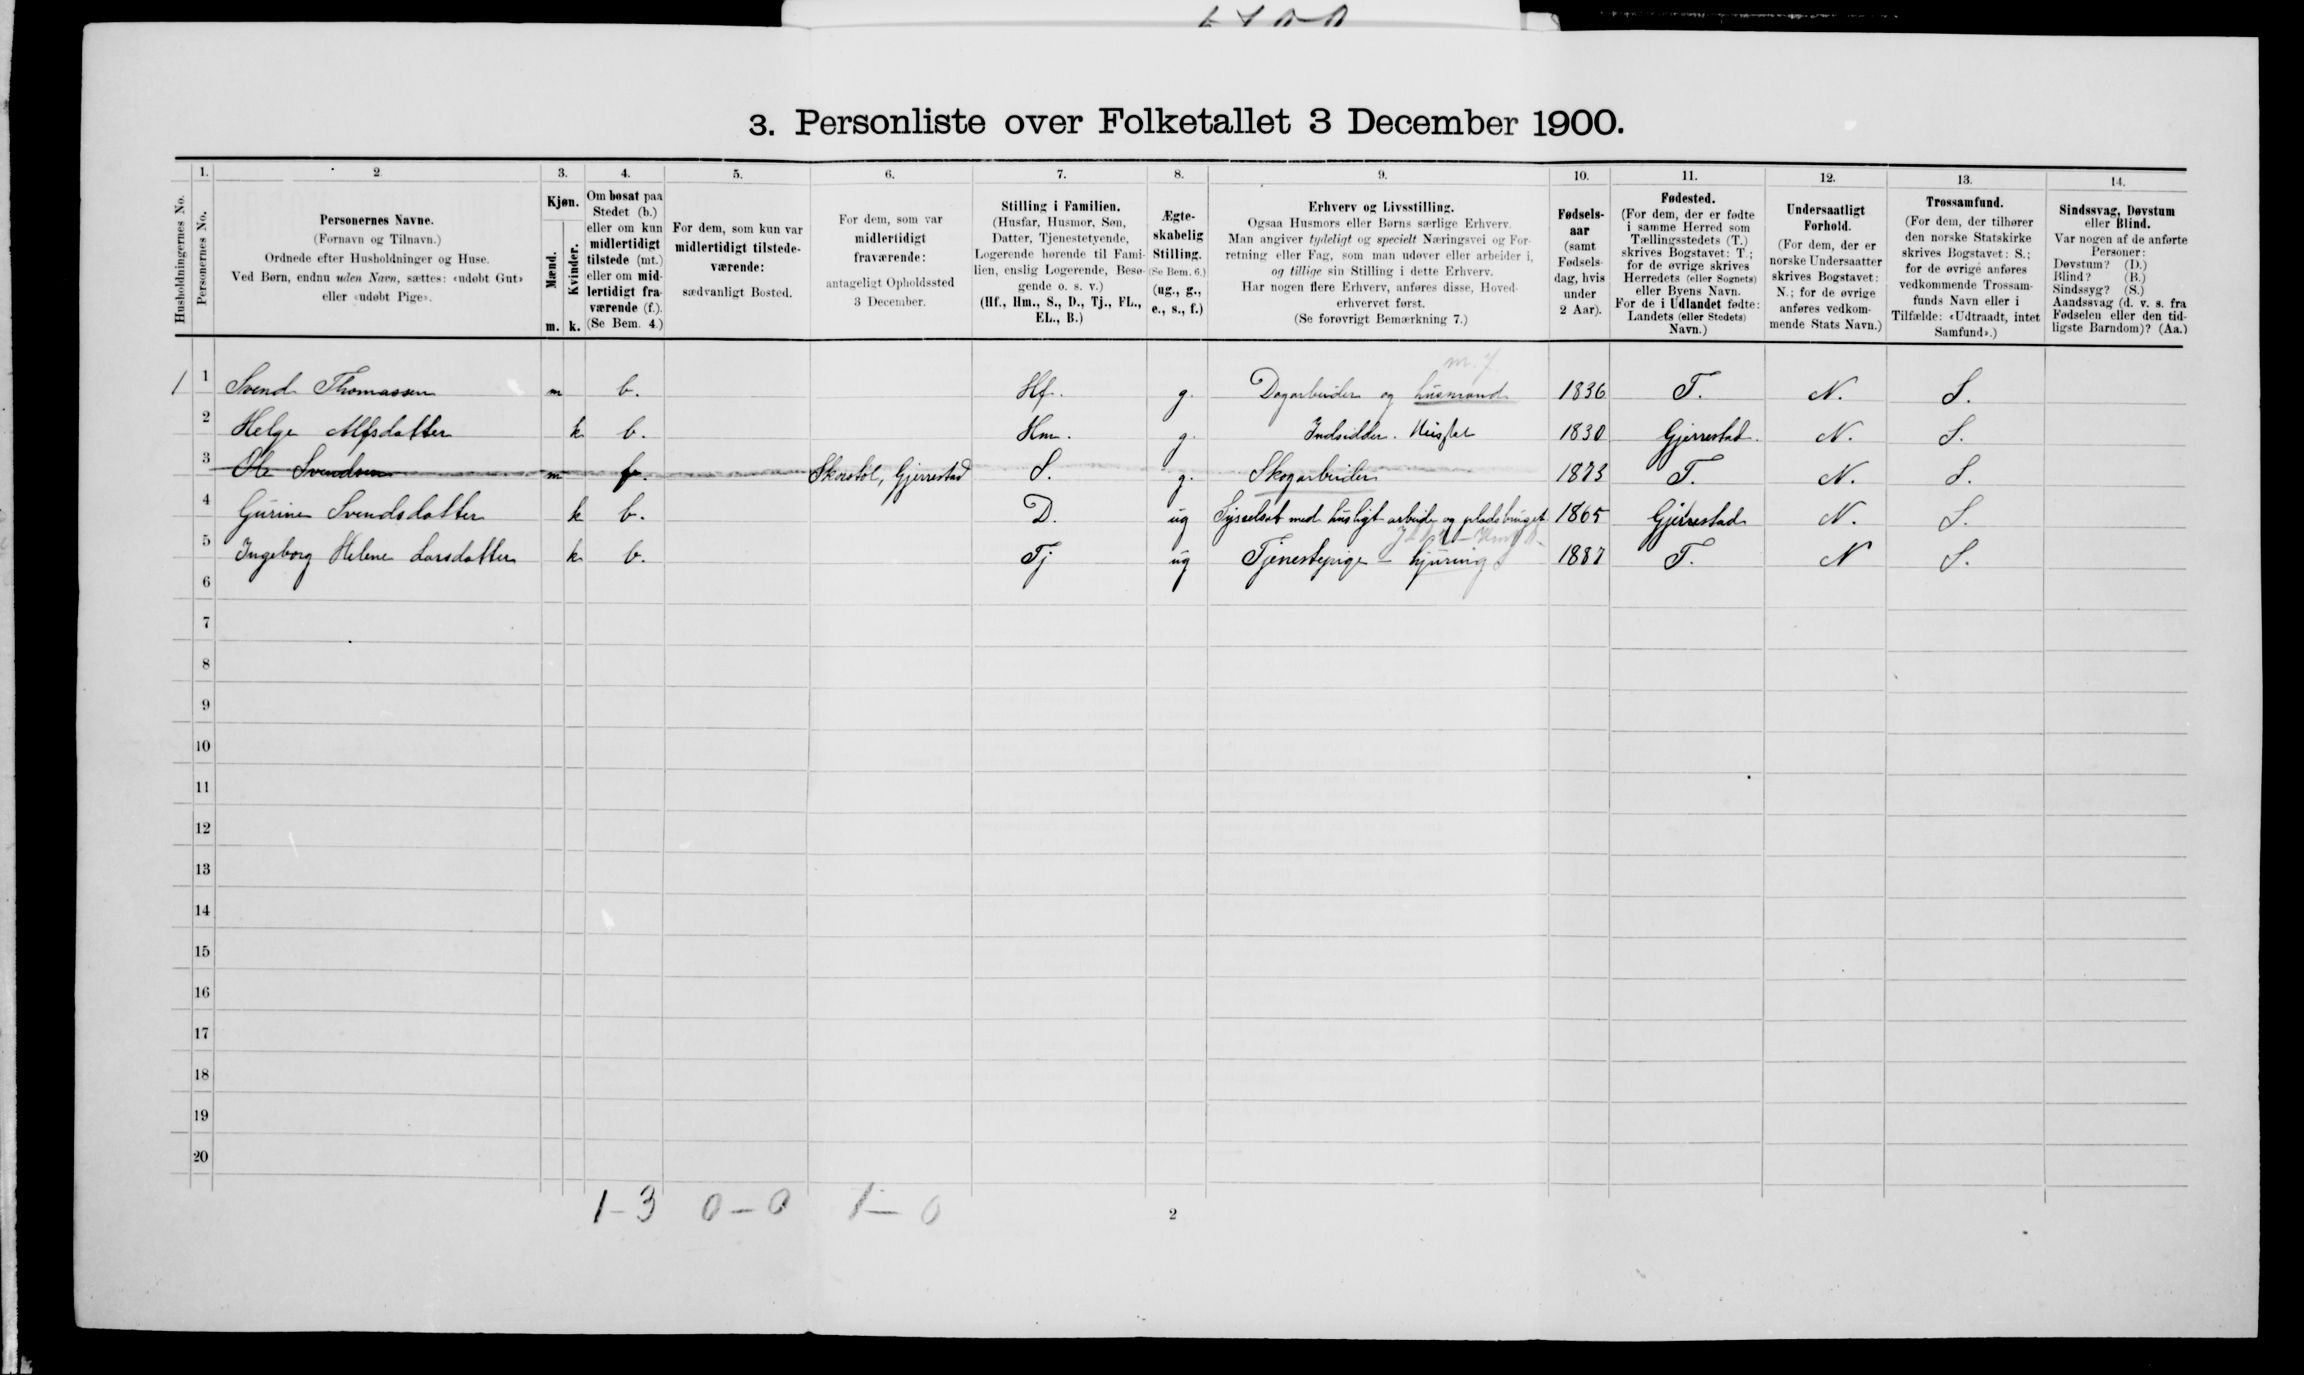 3. Personliste over Folketallet 3 December 1900.
1. 2 3. 4. 5. 6. 7. 8. 9. 10. 11. 12. 13. 14.
Husholdningernes No.
Personernes No.
Personernes Navne.
(Fornavn og Tilnavn.)
Ordnede efter Husholdninger og Huse.
Ved Børn, endnu uden Navn, sættes: «udøbt Gut»
eller «udøbt Pige».
Kjøn.
Mænd.
Kvinder.
m. k.
Om bosat paa
Stedet (b.)
eller om kun
midlertidigt
tilstede (mt.)
eller om mid-
lertidigt fra-
værende (f.).
(Se Bem. 4.)
For dem, som kun var
midlertidigt tilstede-
værende:
sædvanligt Bosted.
For dem, som var
midlertidigt
fraværende:
antageligt Opholdssted
3 December.
Stilling i Familien.
(Husfar, Husmor, Søn,
Datter, Tjenestetyende,
Logerende hørende til Fami-
lien, enslig Logerende, Besø-
gende o. s. v.)
(Hf., Hm., S., D., Tj., FL.,
EL., B.)
Ægte-
skabelig
Stilling.
(Se Bem. 6.)
(ug., g.,
e., s., f.)
Erhverv og Livsstilling.
Ogsaa Husmors eller Børns særlige Erhverv.
Man angiver tydeligt og specielt Næringsvei og For-
retning eller Fag, som man udøver eller arbeider i,
og tillige sin Stilling i dette Erhverv.
Har nogen flere Erhverv, anføres disse, Hoved-
erhvervet først.
(Se forøvrigt Bemærkning 7.)
Fødsels-
aar
(samt
Fødsels-
dag, hvis
under
2 Aar).
Fødested.
(For dem, der er fødte
i samme Herred som
Tællingsstedets (T.)
skrives Bogstavet: T.;
for de øvrige skrives
Herredets (eller Sognets)
eller Byens Navn.
For de i Udlandet fødte:
Landets (eller Stedets)
Navn.)
Undersaatligt
Forhold.
(For dem, der er
norske Undersaatter
skrives Bogstavet:
N.; for de øvrige
anføres vedkom-
mende Stats Navn.)
Trossamfund.
(For dem, der tilhører
den norske Statskirke
skrives Bogstavet: S.;
for de øvrige anføres
vedkommende Trossam-
funds Navn eller i
Tilfælde: «Udtraadt, intet
Samfund».)
Sindssvag, Døvstum
eller Blind.
Var nogen af de anførte
Personer:
Døvstum? (D.)
Blind? (B.)
Sindssyg? (S.)
Aandssvag (d. v. s. fra
Fødselen eller den tid-
ligste Barndom)? (Aa.)
1 1 Svend Thomassen m b. Hf. g. Dagarbeider og husmand 1836 T. N. S.
2 Helge Alfsdatter k b. Hm. g. Indsidder. 1830 Gjerrestad. N. S.
3 Ole Svendsen m f. Skorstøl, Gjerrestad S. g. Skogarbeider 1873 T. N. S.
4 Gurine Svendsdatter k b. D. ug Sysselsat med husligt arbeide og pladsbruget 1865 Gjerrestad N. S.
5 Ingeborg Helene Larsdatter k b. Tj ug Tjenestepige – hjuring 1887 T. N S.
6
7
8
9
10
11
12
13
14
15
16
17
18
19
20
1–3 0–0 1–0
2